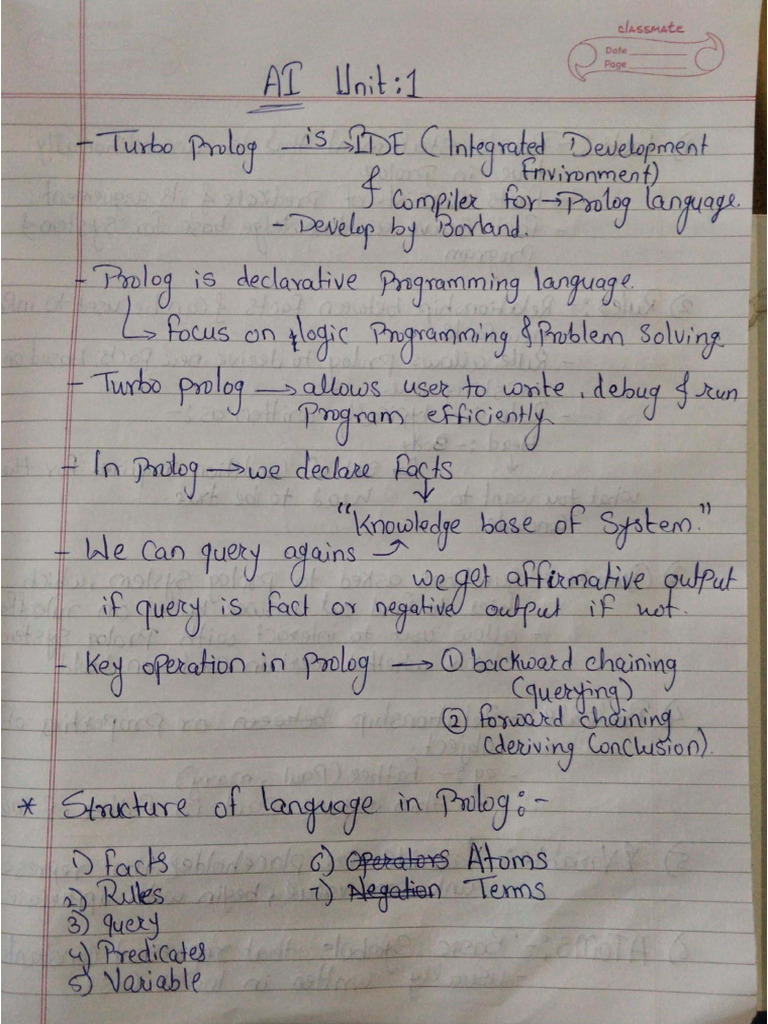 classmate
Date
Page
AI Unit:1
- Turbo Prolog is → IDE (Integrated Development
Environment)
& Compiler for → Prolog language.
- Develop by Borland.
- Prolog is declarative Programming language.
↳ focus on logic Programming & Problem Solving
- Turbo prolog → allows user to write, debug & run
Program efficiently
- In Prolog → we declare facts
↓
"Knowledge base of System."
- We can query agains ↗
we get affirmative output
if query is fact or negative output if not.
- Key operation in Prolog → ① backward chaining
(querying)
② forward chaining
(deriving Conclusion).
* Structure of language in Prolog:-
1) facts
2) Rules
3) query
4) Predicates
5) Variable
6) Operators Atoms
7) Negation Terms